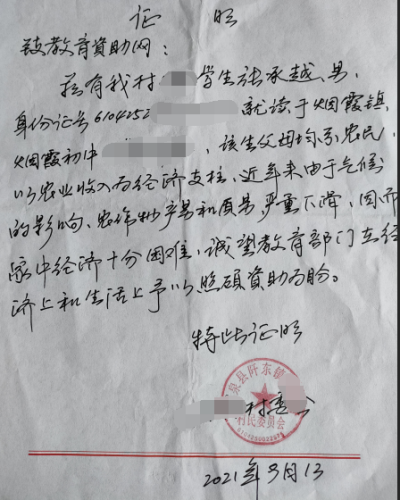 证 明
致教育資助网：
兹有我村 学生张承越、男，
身份证号6104252 就读于烟霞镇
烟霞初中 ，该生父母均系农民，
以农业收入为经济支柱，近年来由于气候
的影响、农作物产量和质量严重下滑，因而
家中经济十分困难，诚望教育部门在经
济上和生活上予以照顾資助为盼。
特此证明
泉县阡东镇
村委会
村民委员会
2021年9月13